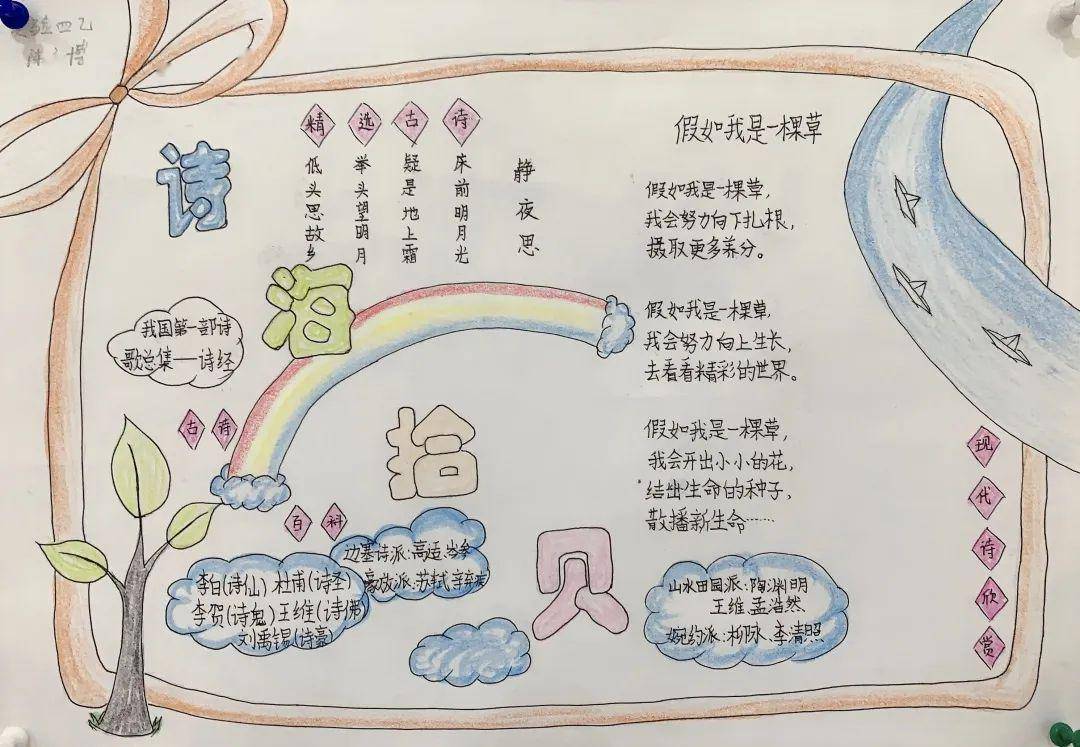 四乙
诗
海
拾
贝
精选古诗
静夜思
床前明月光
疑是地上霜
举头望明月
低头思故乡
我国第一部诗
歌总集——诗经
古诗
百科
李白(诗仙) 杜甫(诗圣)
李贺(诗鬼) 王维(诗佛)
刘禹锡(诗豪)
边塞诗派:高适 岑参
豪放派:苏轼 辛弃疾
假如我是一棵草
假如我是一棵草,
我会努力向下扎根,
摄取更多养分。
假如我是一棵草,
我会努力向上生长,
去看看精彩的世界。
假如我是一棵草,
我会开出小小的花,
结出生命的种子,
散播新生命……
山水田园派:陶渊明
王维 孟浩然
婉约派:柳 、李清照
现代诗欣赏